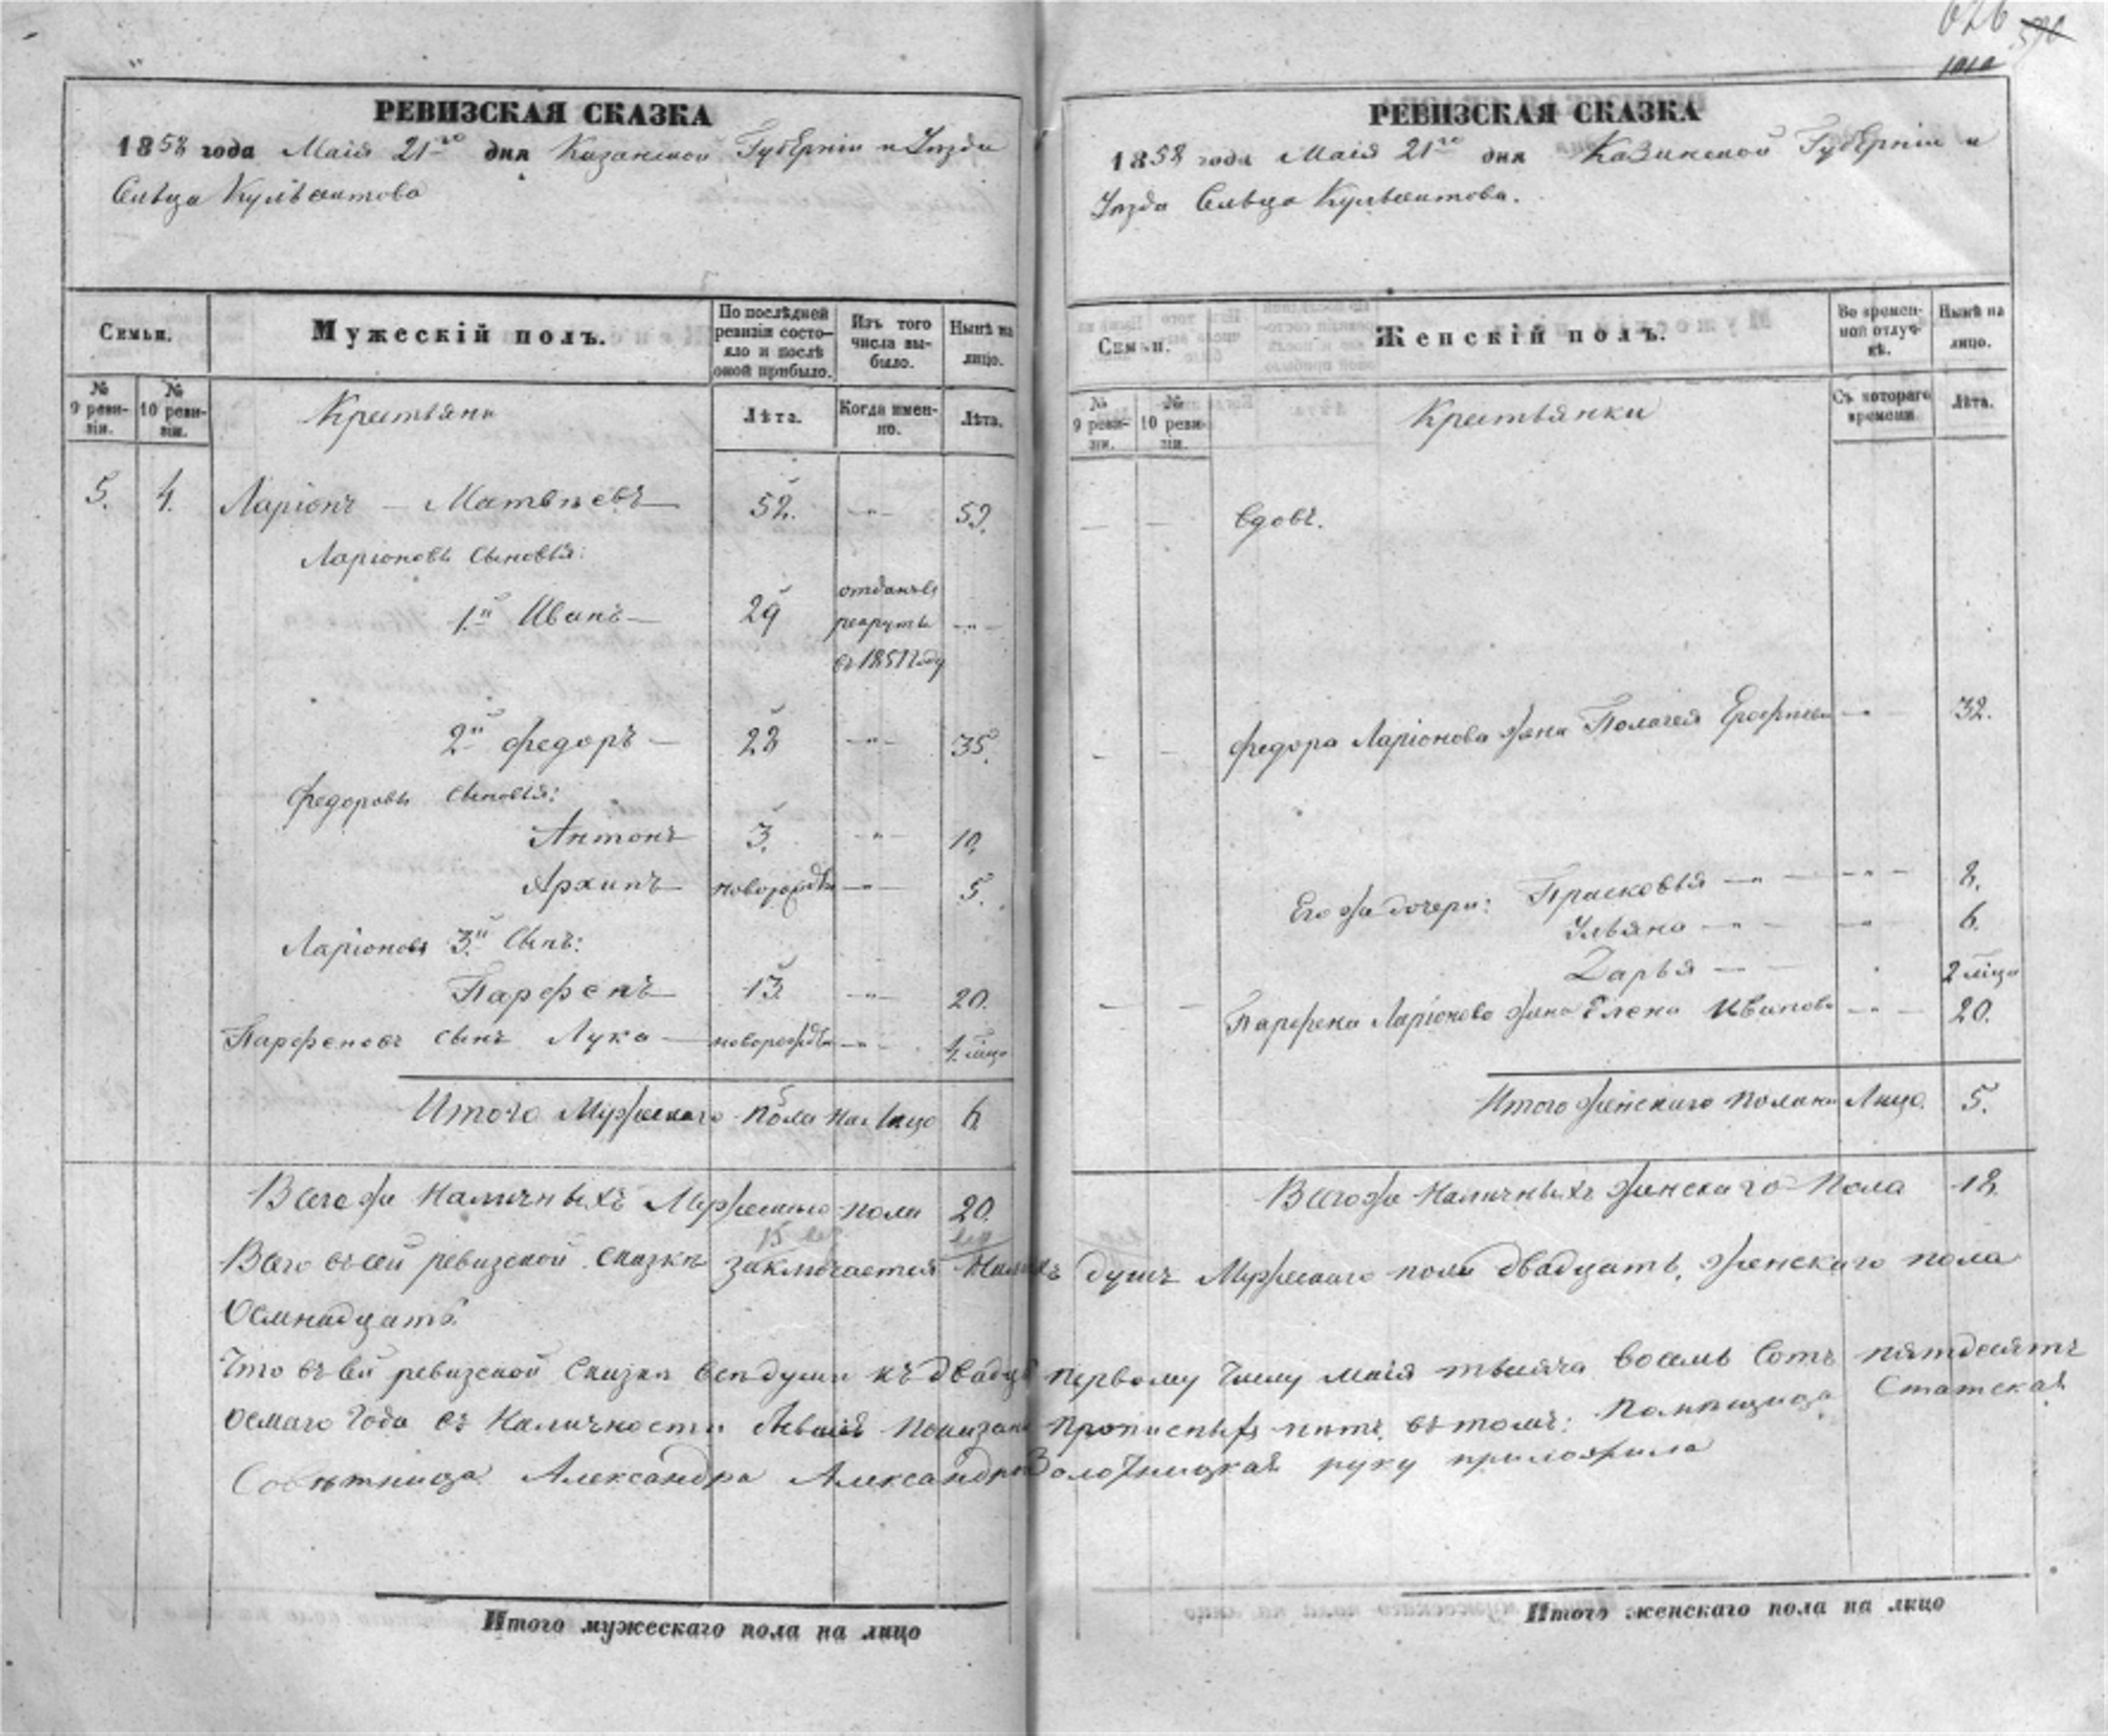 626 590
1010
РЕВИЗСКАЯ СКАЗКА
1858 года Маія 21го дня Казанской Губерніи и Уѣзда
Сельца Кульсеитова
Семьи.
Мужескій полъ.
По послѣдней ревизіи состояло и послѣ оной прибыло.
Изъ того числа выбыло.
Нынѣ на лицо.
№ 9 ревизіи.
№ 10 ревизіи.
Крестьяне
Лѣта.
Когда именно.
Лѣта.
5. 4. Ларіонъ — Матвѣевъ — 52. —"— 59.
Ларіоновы сыновья:
1й Иванъ — 29 отданъ въ рекруты въ 1851 году —"—
2й Федоръ — 28 —"— 35.
Федоровы сыновья:
Антонъ 3. —"— 10.
Архипъ — новорожден —"— 5.
Ларіоновъ 3й сынъ:
Парфенъ — 13. —"— 20.
Парфеновъ сынъ Лука — новорожден —"— 4 мѣсяца
Итого Мужескаго пола на лицо 6.
Всего же наличныхъ Мужескаго пола 20.
РЕВИЗСКАЯ СКАЗКА
1858 года Маія 21го дня Казанской Губерніи и
Уѣзда Сельца Кульсеитова.
Семьи.
Женскій полъ.
Во временной отлучкѣ.
Нынѣ на лицо.
№ 9 ревизіи.
№ 10 ревизіи.
Крестьянки
Съ котораго времени
Лѣта.
— — вдовъ.
— — Федора Ларіонова жена Полагея Ерофѣева —"— 32.
Его же дочери: Прасковья —"— —"— 8.
Ульяна —"— —"— 6.
Дарья —"— 2 мѣсяца
— — Парфена Ларіонова жена Елена Иванова —"— 20.
Итого женскаго пола на Лицо. 5.
Всего же наличныхъ женскаго пола 18.
Всего въ сей ревизской сказкѣ заключается наличныхъ душъ Мужескаго пола двадцать, женскаго пола
Осмнадцать.
Что въ сей ревизской сказкѣ всѣ души къ двадцать первому числу маія тысяча восемь сотъ пятдесятъ
осмаго года въ наличности показаны прописныхъ нѣтъ, въ томъ: помѣщица Статская
Совѣтница Александра Александрова руку приложила
Итого мужескаго пола на лицо
Итого женскаго пола на лицо